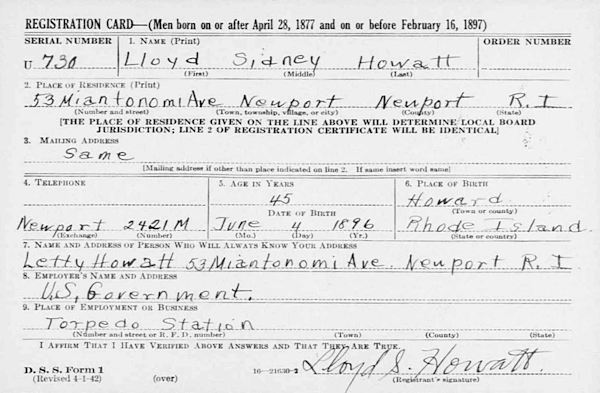 REGISTRATION CARD—(Men born on or after April 28, 1877 and on or before February 16, 1897)
SERIAL NUMBER 1. NAME (Print) ORDER NUMBER
U 730 Lloyd Sidney Howatt
(First) (Middle) (Last)
2. PLACE OF RESIDENCE (Print)
53 Miantonomi Ave Newport Newport R.I
(Number and street) (Town, township, village, or city) (County) (State)
[THE PLACE OF RESIDENCE GIVEN ON THE LINE ABOVE WILL DETERMINE LOCAL BOARD
JURISDICTION; LINE 2 OF REGISTRATION CERTIFICATE WILL BE IDENTICAL]
3. MAILING ADDRESS
Same
[Mailing address if other than place indicated on line 2. If same insert word same]
4. TELEPHONE 5. AGE IN YEARS 6. PLACE OF BIRTH
45 Howard
DATE OF BIRTH (Town or county)
Newport 2421M June 4 1896 Rhode Island
(Exchange) (Number) (Mo.) (Day) (Yr.) (State or country)
7. NAME AND ADDRESS OF PERSON WHO WILL ALWAYS KNOW YOUR ADDRESS
Letty Howatt 53 Miantonomi Ave. Newport R.I
8. EMPLOYER'S NAME AND ADDRESS
U.S. Government.
9. PLACE OF EMPLOYMENT OR BUSINESS
Torpedo Station
(Number and street or R. F. D. number) (Town) (County) (State)
I AFFIRM THAT I HAVE VERIFIED ABOVE ANSWERS AND THAT THEY ARE TRUE.
D. S. S. Form 1
(Revised 4-1-42) (over) 16—21630-2 Lloyd S. Howatt.
(Registrant's signature)